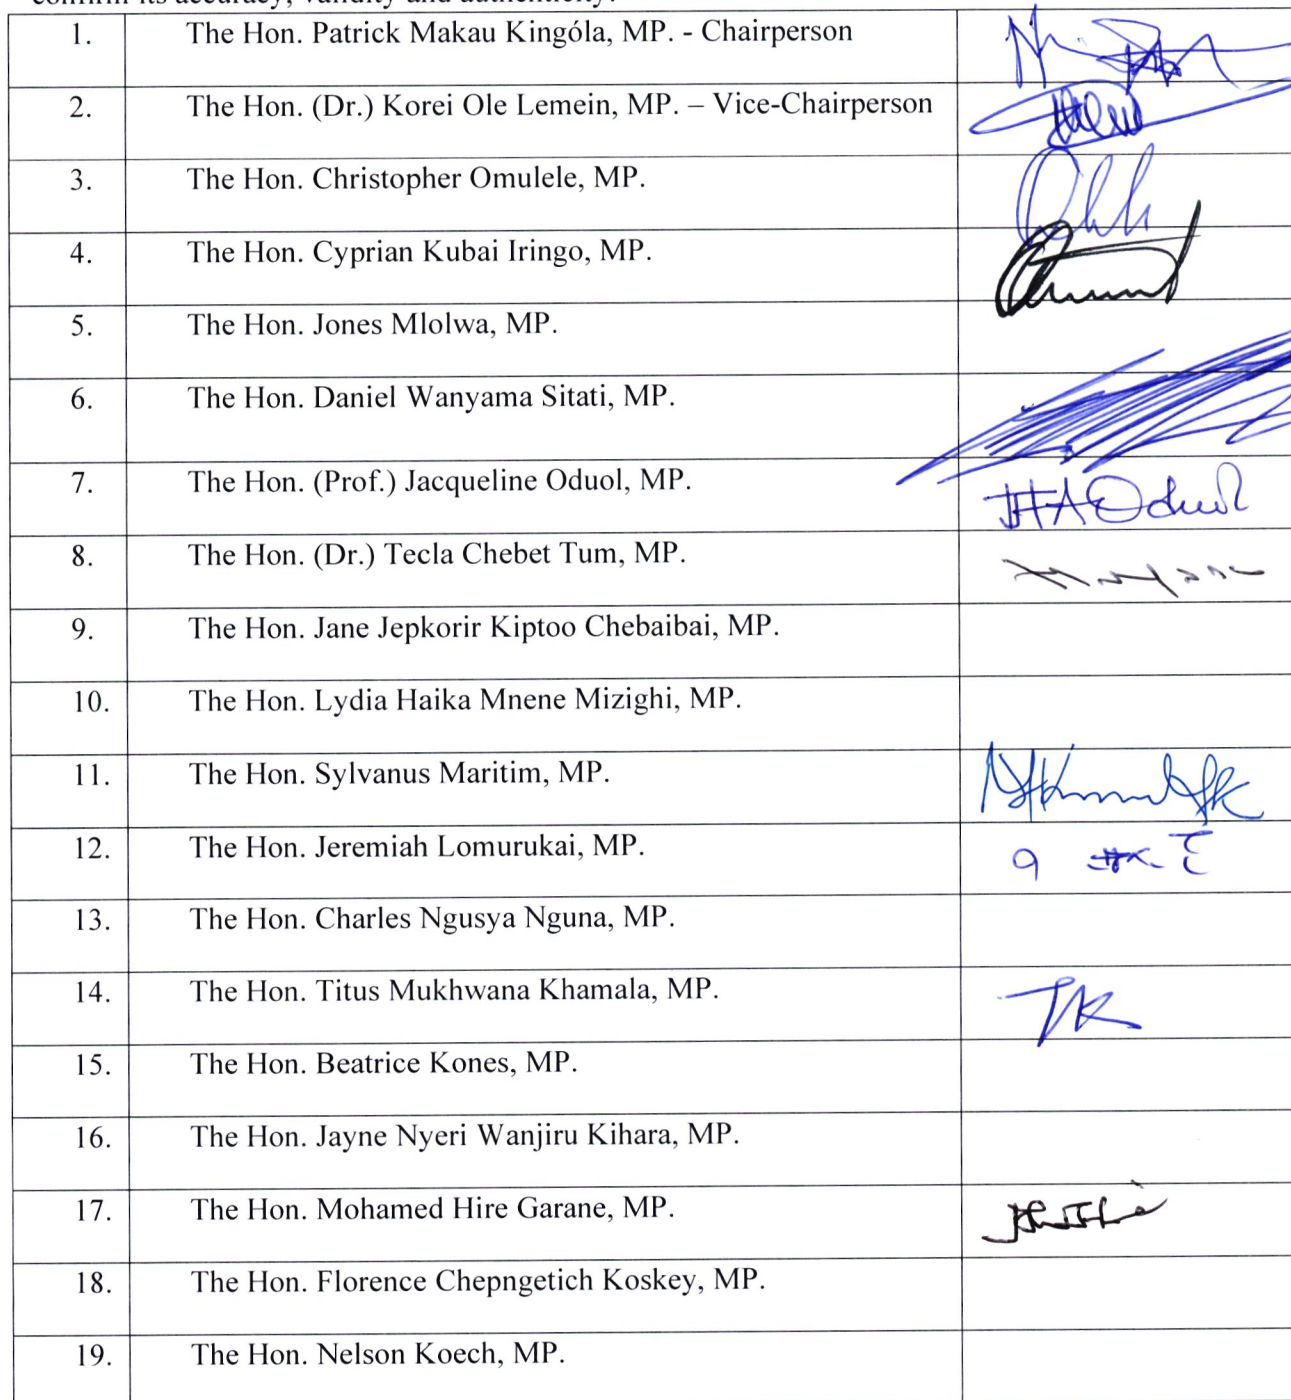 confirm its accuracy, validity and authenticity.
1. The Hon. Patrick Makau Kingóla, MP. - Chairperson
2. The Hon. (Dr.) Korei Ole Lemein, MP. – Vice-Chairperson
3. The Hon. Christopher Omulele, MP.
4. The Hon. Cyprian Kubai Iringo, MP.
5. The Hon. Jones Mlolwa, MP.
6. The Hon. Daniel Wanyama Sitati, MP.
7. The Hon. (Prof.) Jacqueline Oduol, MP. JHA Oduol
8. The Hon. (Dr.) Tecla Chebet Tum, MP.
9. The Hon. Jane Jepkorir Kiptoo Chebaibai, MP.
10. The Hon. Lydia Haika Mnene Mizighi, MP.
11. The Hon. Sylvanus Maritim, MP.
12. The Hon. Jeremiah Lomurukai, MP.
13. The Hon. Charles Ngusya Nguna, MP.
14. The Hon. Titus Mukhwana Khamala, MP. TK
15. The Hon. Beatrice Kones, MP.
16. The Hon. Jayne Nyeri Wanjiru Kihara, MP.
17. The Hon. Mohamed Hire Garane, MP.
18. The Hon. Florence Chepngetich Koskey, MP.
19. The Hon. Nelson Koech, MP.